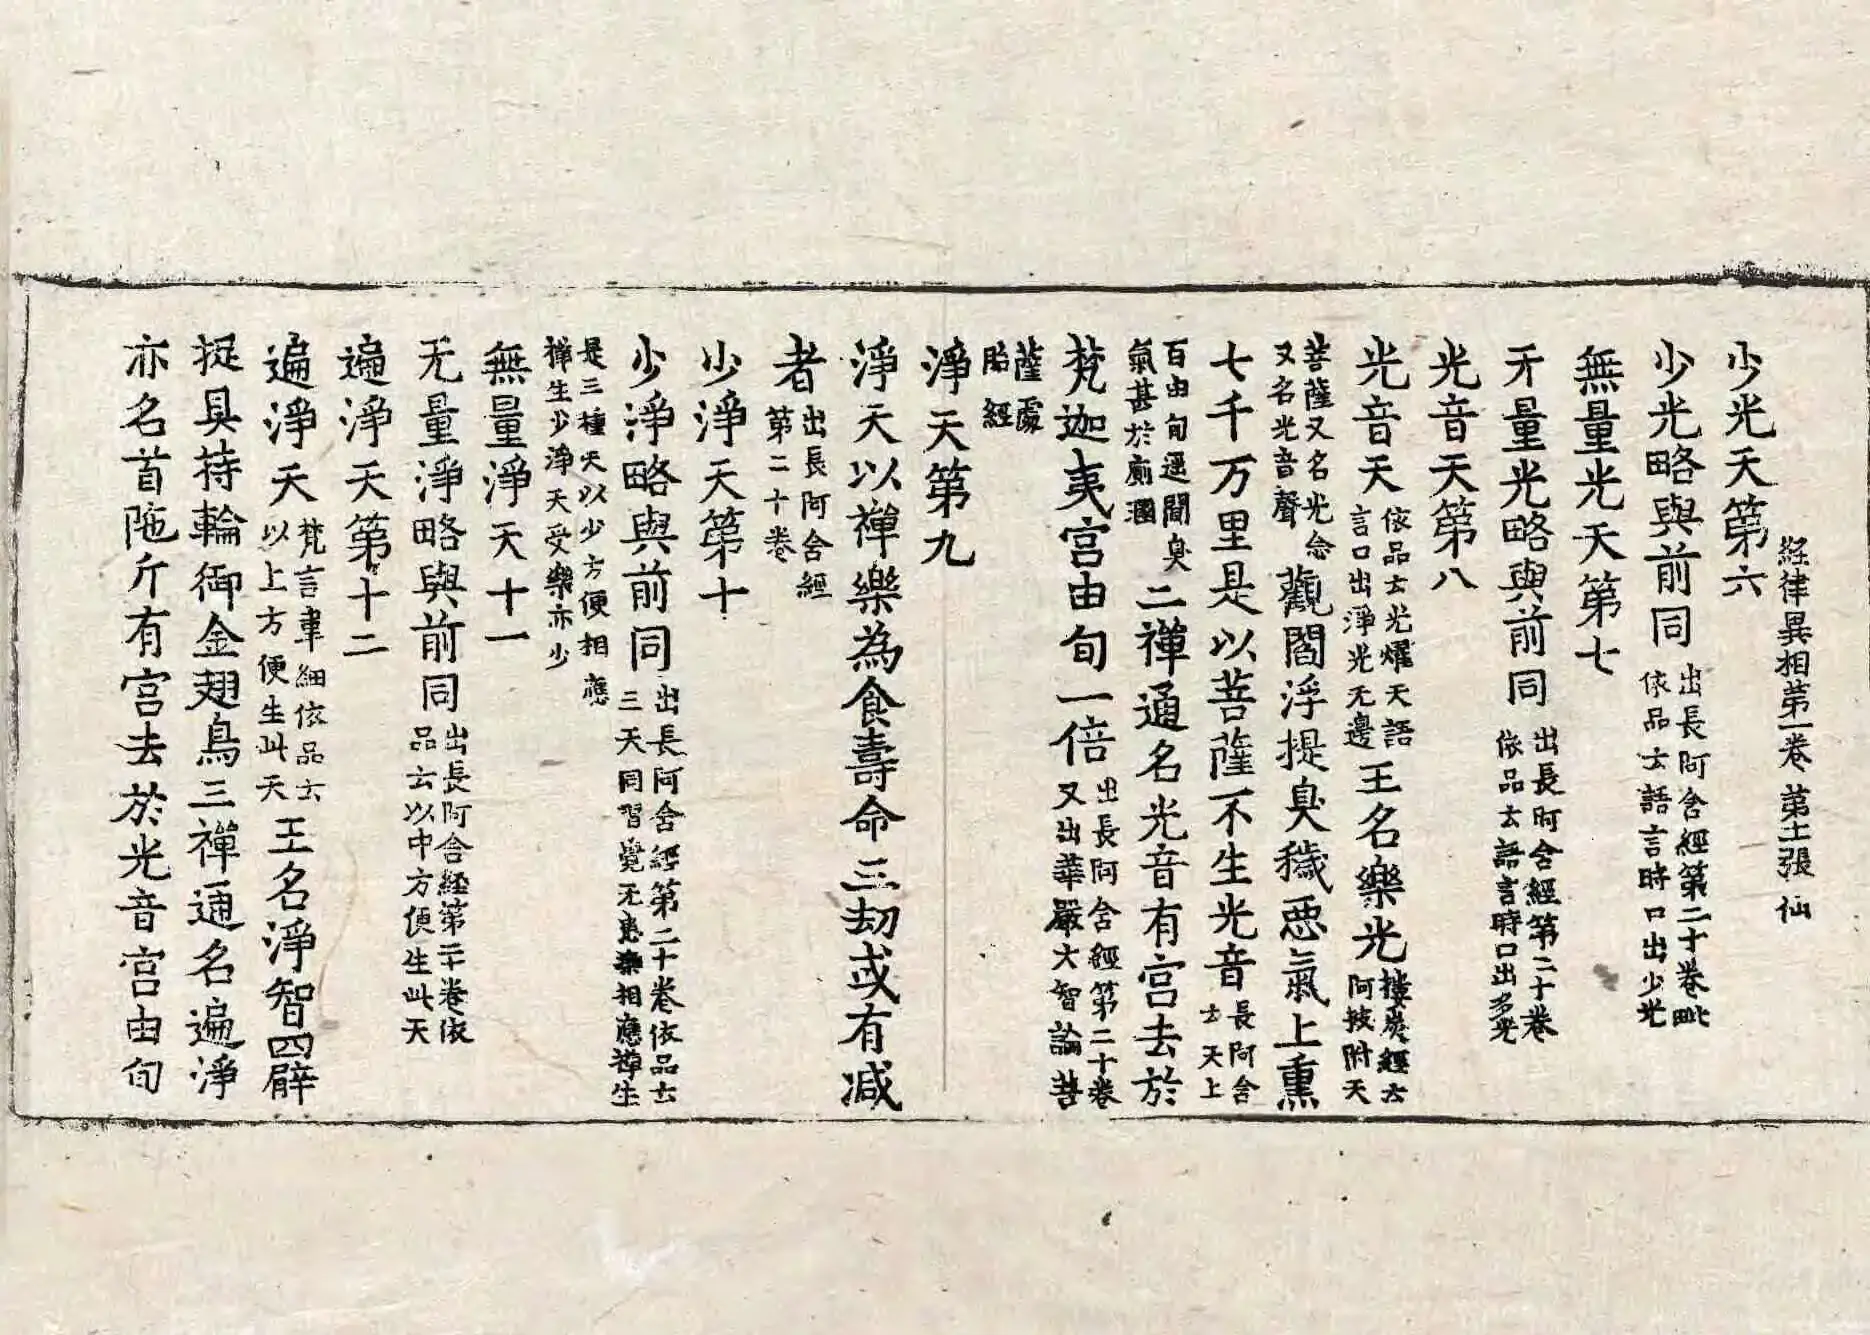 経律異相第一卷 第十二張 仙
少光天第六
少光略與前同 出長阿含經第二十卷毗 依品云語言時口出少光
無量光天第七
无量光略與前同 出長阿含經第二十卷 依品云語言時口出多光
光音天第八
光音天 依品云光燿天語 言口出淨光无邊 王名樂光 樓炭經云 阿披附天
菩薩又名光念 又名光音聲 觀閻浮提臭穢惡氣上熏
七千万里是以菩薩不生光音 長阿含 云天上
百由旬遥聞臭 氣甚於廁溷 二禪通名光音有宫去於
梵迦夷宫由旬一倍 出長阿含經第二十卷 又出華嚴大智論菩
薩處 胎經
淨天第九
淨天以禪樂為食壽命三劫或有减
者 出長阿含經 第二十卷
少淨天第十
少淨略與前同 出長阿含經第二十卷依品云 三天同習覺无患樂相應禪生
是三種天以少方便相應 禪生少淨天受樂亦少
無量淨天十一
无量淨略與前同 出長阿含經第二十卷依 品云以中方便生此天
遍淨天第十二
遍淨天 梵言聿細依品云 以上方便生此天 王名淨智四臂
捉具持輪御金翅鳥三禪通名遍淨
亦名首陁斤有宫去於光音宫由旬